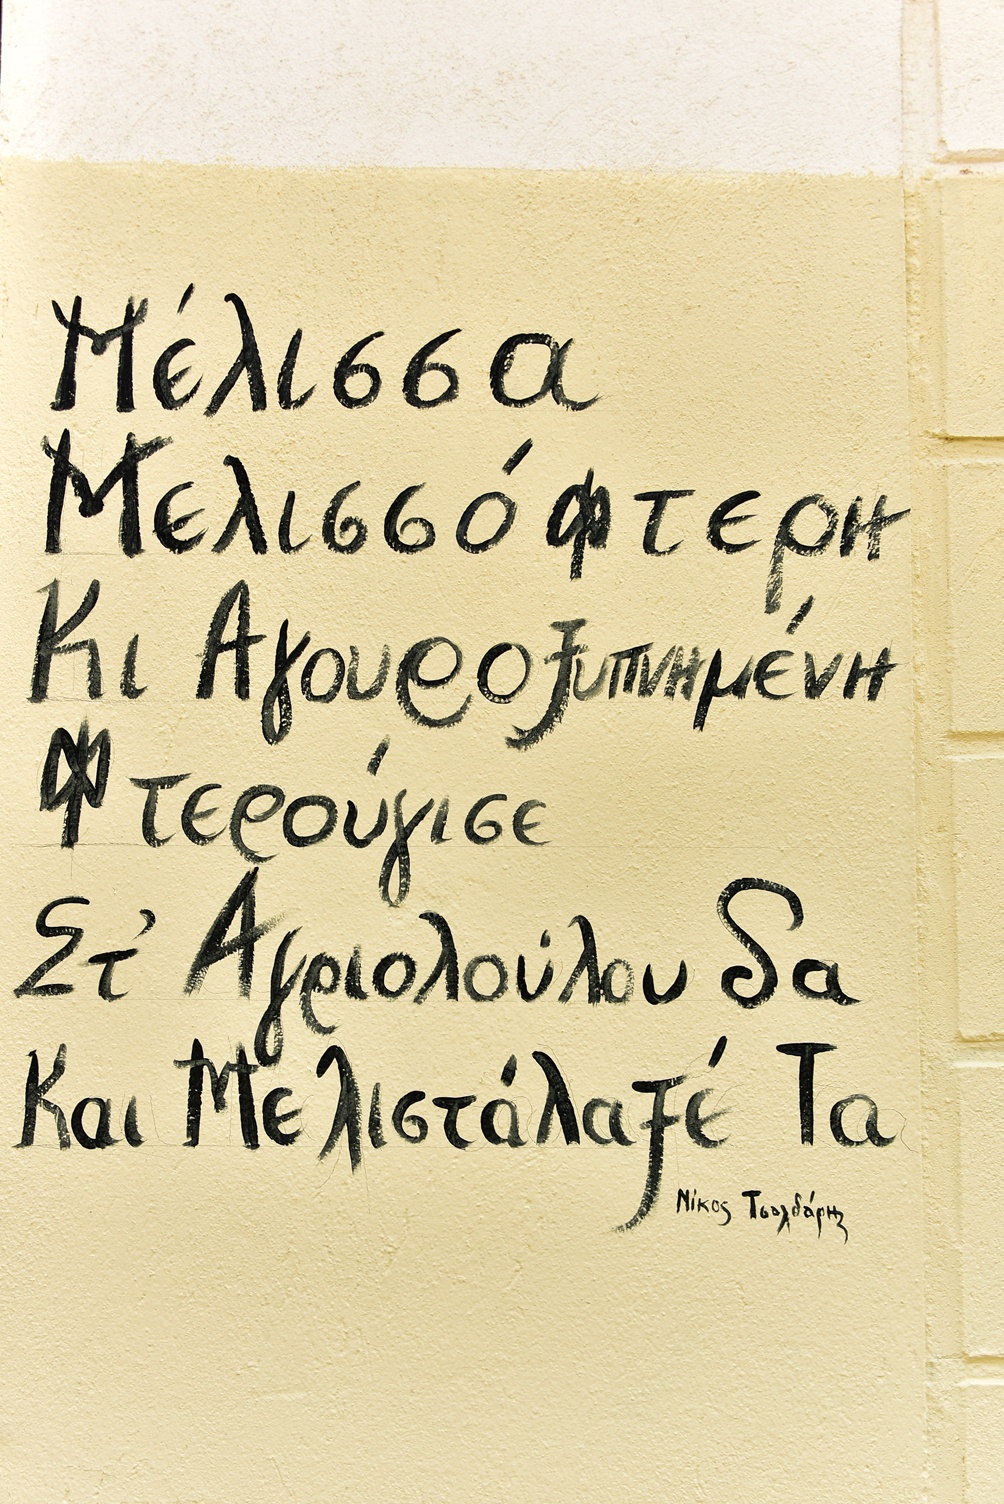 Μέλισσα
Μελισσόφτερη
Κι Αγουροξυπνημένη
Φτερούγισε
Στ' Αγριολούλουδα
Και Μελιστάλαξέ Τα
Νίκος Τσαλδάρης